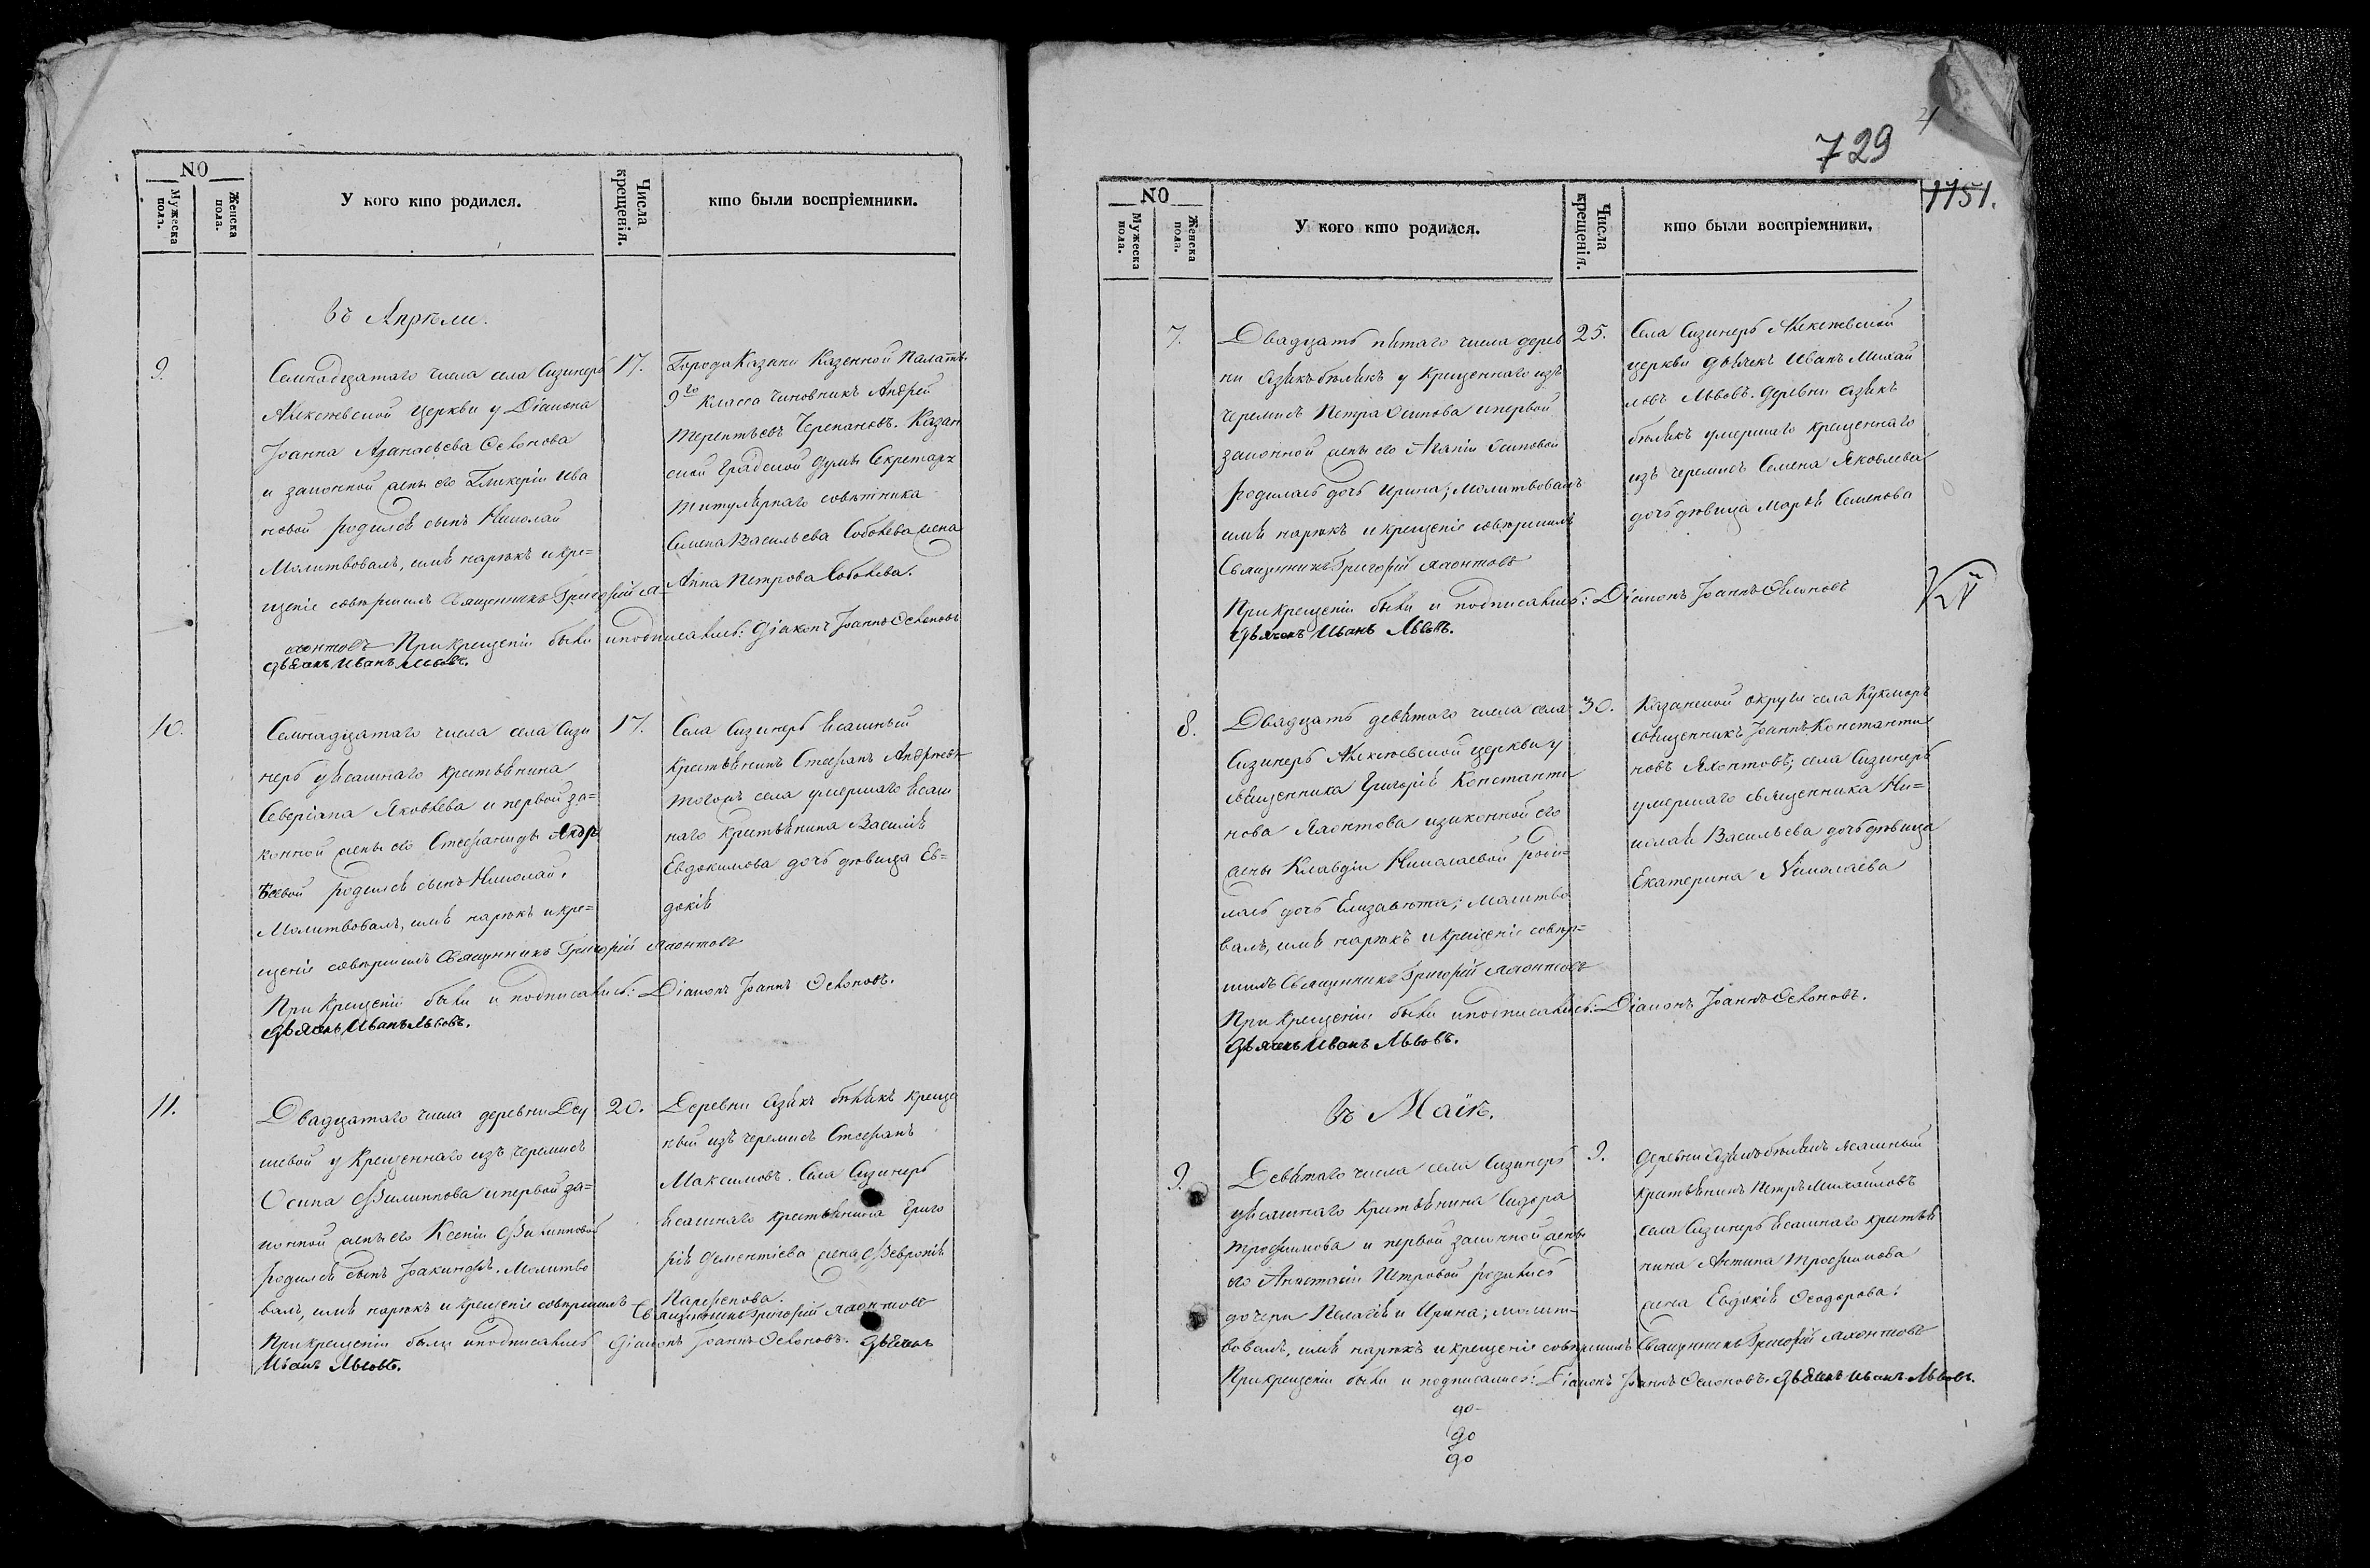 NO
Мужеска пола.
Женска пола.
У кого кто родился.
Числа крещенія.
кто были воспріемники.
въ Апрѣли.
9.
Семнадцатаго числа села Сизинерь
Алексѣевской церкви у Діакона
Іоанна Афанасьева Осоконова
и законной жены его Гликеріи Ива
новой родился сынъ Николай
Молитвовалъ, имя нарѣкъ и кре=
щеніе совѣршилъ Священникъ Григорій Я=
хонтовъ При крещеніи были и подписались: Діаконъ Іоаннъ
дьячокъ Иванъ Львовъ.
17.
Города Казани Казенной Палаты
9го класса чиновникъ Андрей
Терентьевъ Черепановъ. Казан
ской градской думы Секретаря
титулярнаго совѣтника
Семена Васильева жена
Анна Петрова
10.
Семнадцатаго числа села Сизи
нерь у ясашнаго крестьянина
Северіана Яковлева и первой за=
конной жены его Стефаниды Андр
ѣевой родился сынъ Николай.
Молитвовалъ, имя нарѣкъ и кре=
щеніе совѣршилъ Священникъ Григорій Яхонтовъ
При крещеніи были и подписались: Діаконъ Іоаннъ
дьячокъ Иванъ Львовъ.
17.
Села Сизинерь ясашный
крестьянинъ Стефанъ Андрѣевъ
тогожъ села умершаго ясаш
наго крестьянина Василія
Евдокимова дочь дѣвица Ев=
докія
11.
Двадцатаго числа деревни
шевой у крещеннаго изъ черемисъ
Осипа Филиппова и первой за=
конной жены его Ксеніи Филипповой
родился сынъ Іоакинфъ. Молитво
валъ, имя нарѣкъ и крещеніе совѣршилъ Священникъ Григорій Яхонтовъ
При крещеніи были и подписались Діаконъ Іоаннъ дьячокъ
Иванъ Львовъ.
20.
Деревни крещо
ный изъ черемисъ Стефанъ
Максимовъ. Села Сизинерь
ясашнаго крестьянина Григо
рія Дементіева жена Февронія
Парфенова.
729
4
1751.
NO
Мужеска пола.
Женска пола.
У кого кто родился.
Числа крещенія.
кто были воспріемники,
7.
Двадцать пятаго числа дерев
ни у крещеннаго изъ
черемисъ Петра Осипова и первой
законной жены его Агапіи Осиповой
родилась дочь Ирина; Молитвовалъ
имя нарѣкъ и крещеніе совѣршилъ
Священникъ Григорій Яхонтовъ
При крещеніи были и подписались: Діаконъ Іоаннъ
дьячокъ Иванъ Львовъ.
25.
Села Сизинерь Алексѣевской
церкви дьячекъ Иванъ Михай
ловъ Львовъ. деревни
умершаго крещеннаго
изъ черемисъ Семена Яковлева
дочь дѣвица Марья Семенова
8.
Двадцать девятаго числа села
Сизинерь Алексѣевской церкви у
священника Григорія Константи
нова Яхонтова и законной его
жены Клавдіи Николаевой роди=
лась дочь Елизавѣта; Молитво
валъ, имя нарѣкъ и крещеніе совѣр=
шилъ Священникъ Григорій Яхонтовъ
При крещеніи были и подписались: Діаконъ Іоаннъ
дьячекъ Иванъ Львовъ.
30.
Казанской округи села Кукморъ
священникъ Іоаннъ Константи
новъ Яхонтовъ; села Сизинерь
умершаго священника Ни=
колая Васильева дочь дѣвица
Екатерина Николаева
въ Маіѣ.
9.
Девятаго числа села Сизинерь
у ясашнаго крестьянина Сидора
Трофимова и первой законной жены
его Анастасіи Петровой родились
дочери Пелагія и Ирина; молит=
вовалъ, имя нарѣкъ и крещеніе совѣршилъ Священникъ Григорій Яхонтовъ
При крещеніи были и подписались: Діаконъ Іоаннъ дьячекъ Иванъ Львовъ.
9.
деревни ясашный
крестьянинъ Петръ Михайловъ
села Сизинерь ясашнаго крестья
нина Антипа Трофимова
жена Евдокія Феодорова.